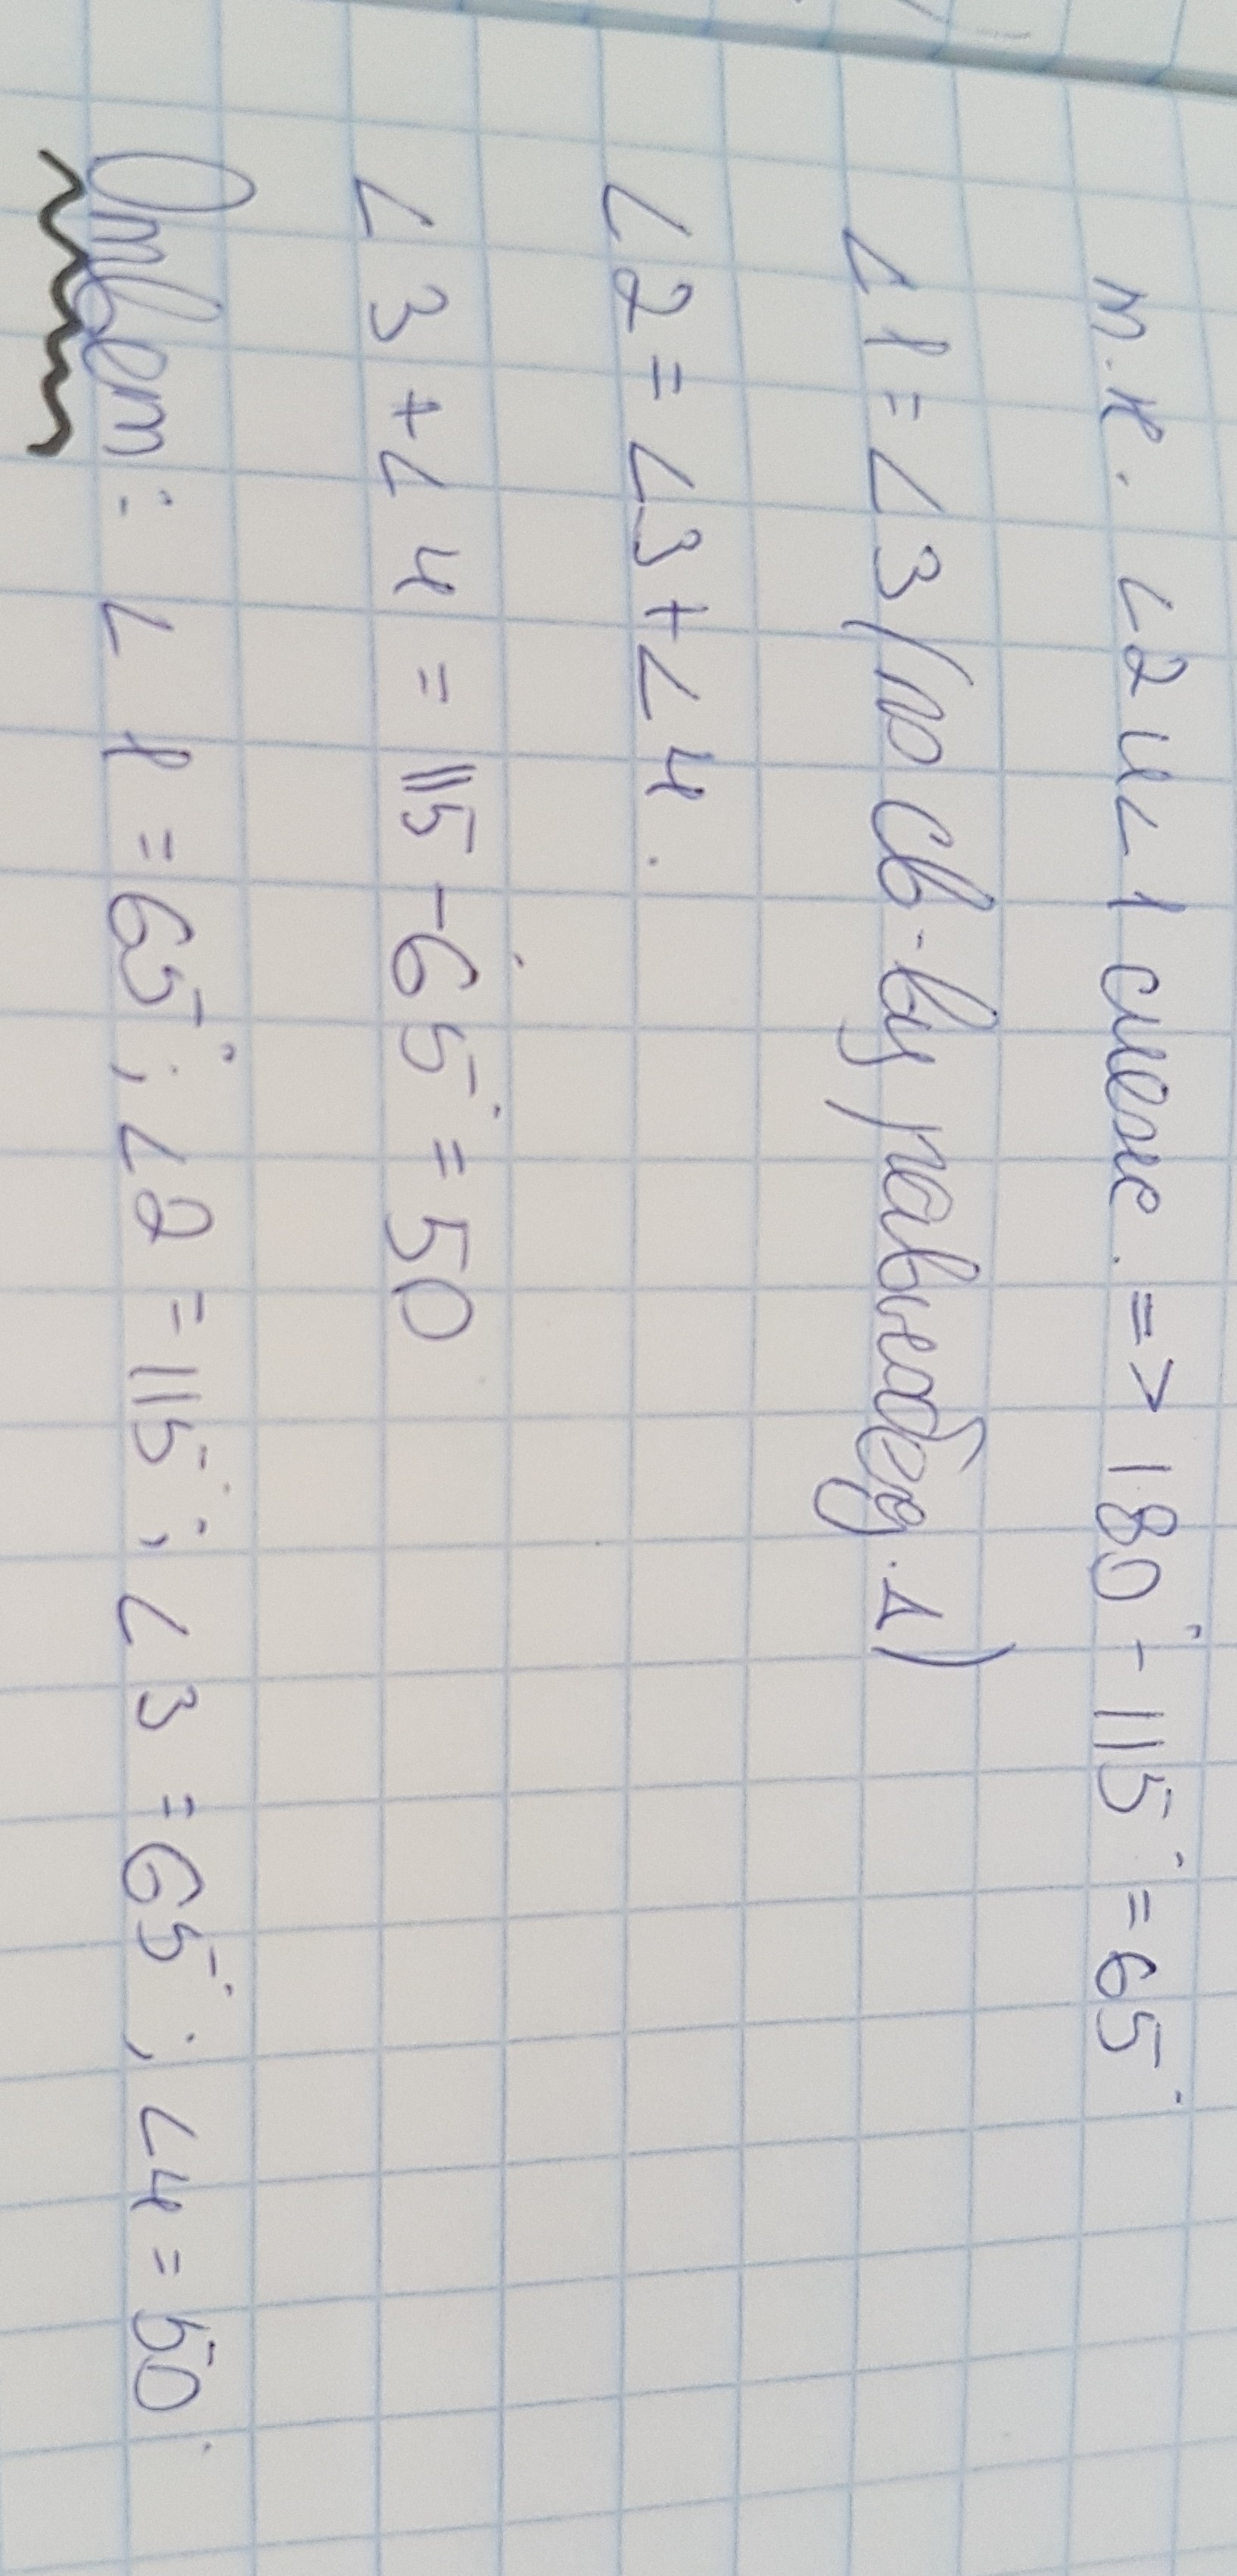 т.к. ∠2 и ∠1 смеж. => 180° - 115° = 65°
∠1 = ∠3 (по св-ву равнобед. Δ)
∠2 = ∠3 + ∠4.
∠3 + ∠4 = 115 - 65° = 50
Ответ: ∠1 = 65°; ∠2 = 115°; ∠3 = 65°; ∠4 = 50°